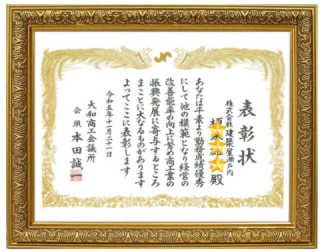 表彰状
株式会社建築屋瀬戸内
殿
あなたは平素より勤務成績優秀
にして他の模範となり経営の
改善能率の向上に努め商工業の
振興発展に寄与するところ
まことに大なるものがあります
よってここに表彰します
令和五年十一月二十一日
大和商工会議所
会頭 本田誠一